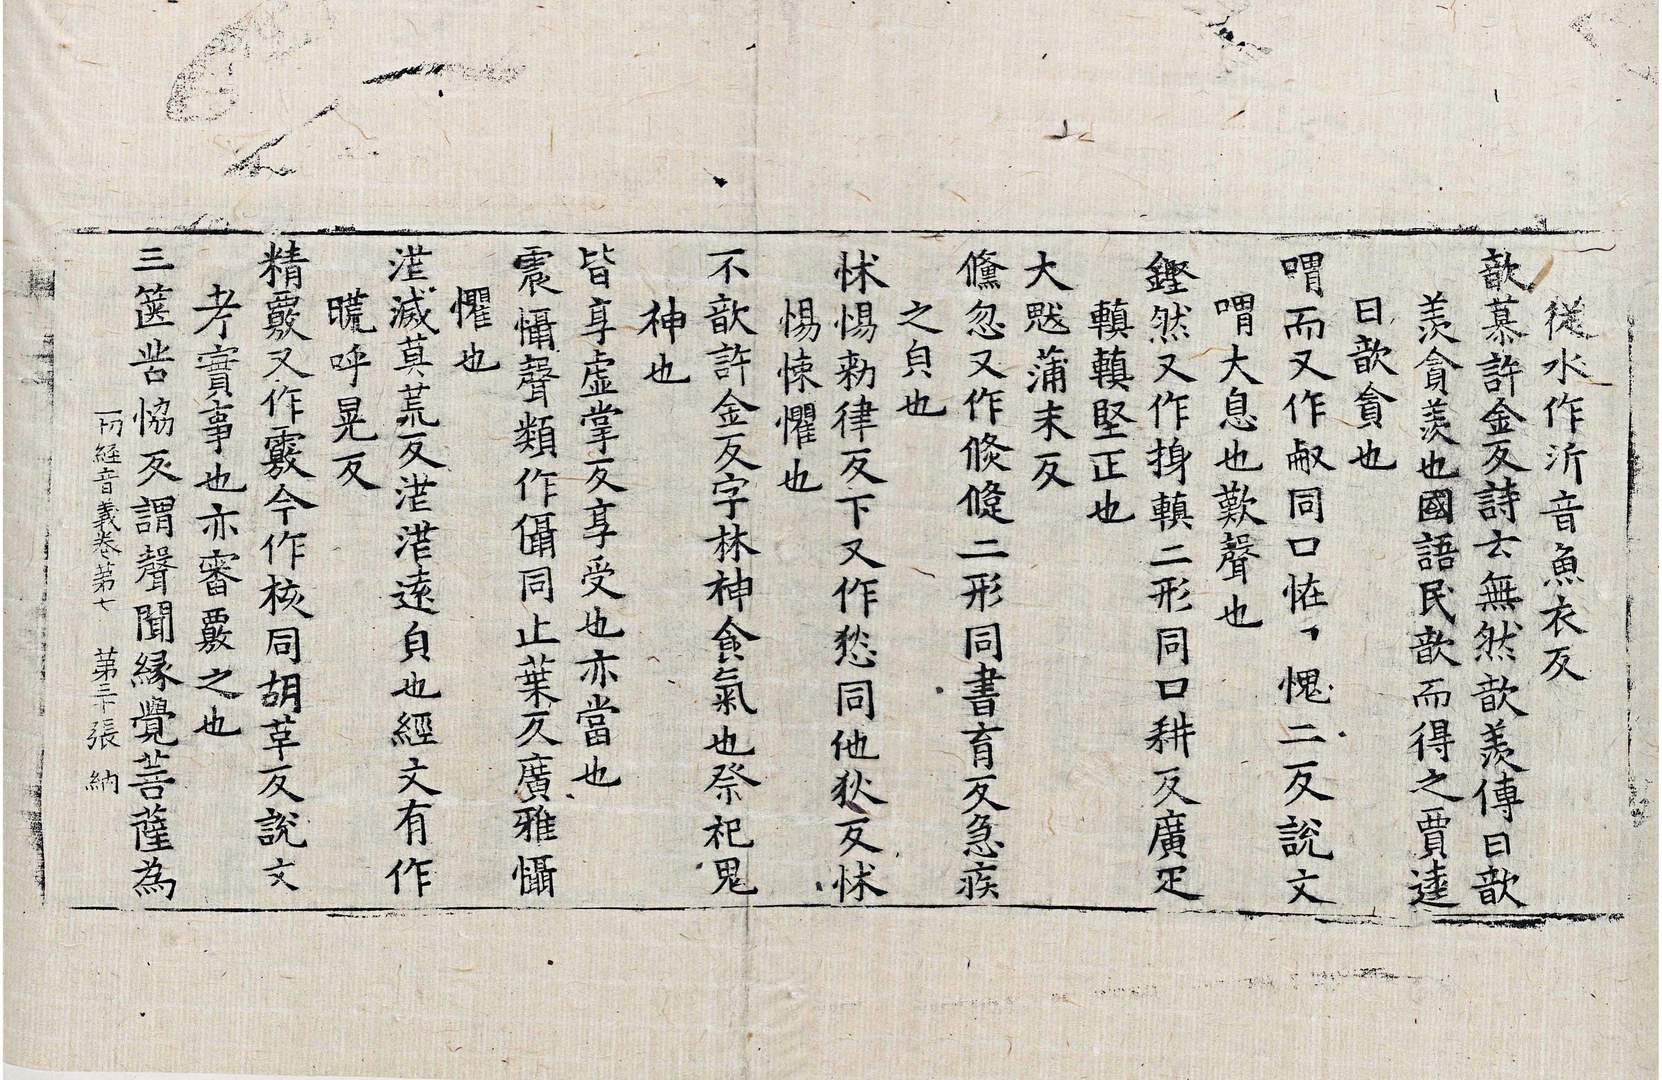 從水作沂音魚衣反
歆慕許金反詩云無然歆羨傳曰歆
羨貪羨也國語民歆而得之賈逵
曰歆貪也
喟而又作嘳同口怪口愧二反說文
喟大息也歎聲也
鏗然又作摼䡰二形同口耕反廣疋
䡰䡰堅正也
大魃蒲末反
儵忽又作倐倏二形同書育反急疾
之皃也
怵惕勑律反下又作愁同他狄反怵
惕悚懼也
不歆許金反字林神食氣也祭祀鬼
神也
皆享虛掌反享受也亦當也
震懾聲類作㒤同止葉反廣雅懾
懼也
漭滅莫荒反漭漭遠皃也經文有作
㬻呼晃反
精覈又作覈今作核同胡革反說文
考實事也亦審覈之也
三篋苦恊反謂聲聞緣覺菩薩為
一切經音義卷第七 第三十張 納